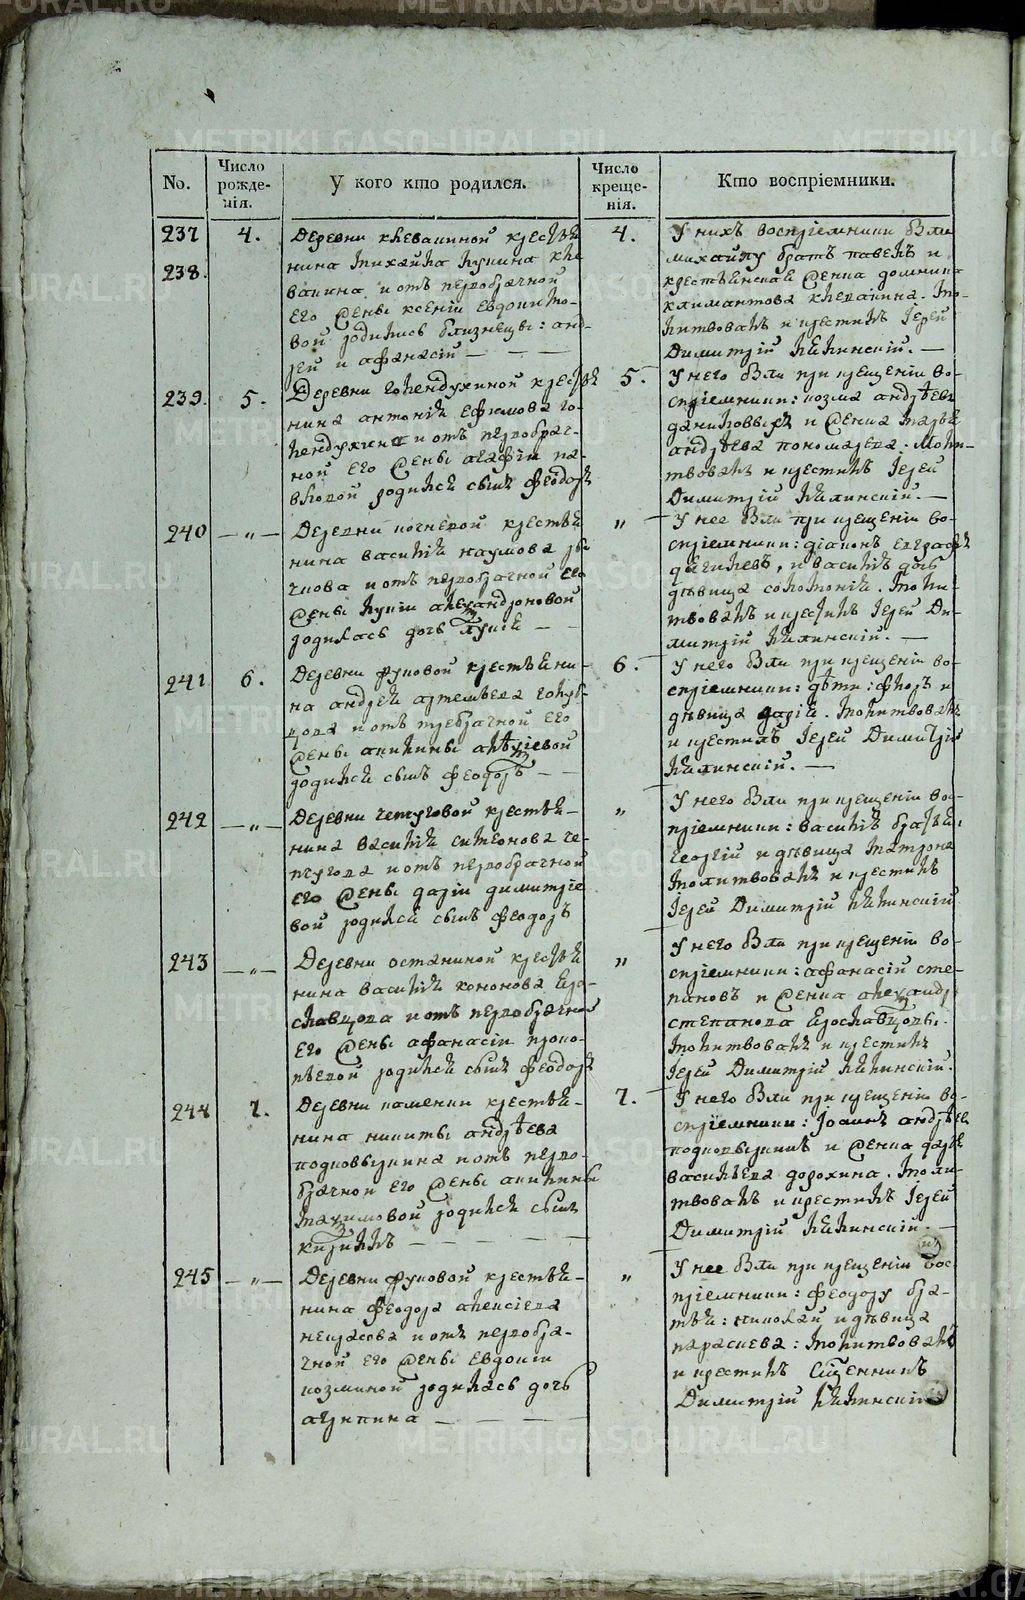 No.
Число рожденія.
У кого кто родился.
Число крещенія.
Кто воспріемники.
237
238.
4.
Деревни клевакиной крестья
нина михайла лукина кле
вакина и отъ первобрачной
его жены ксеніи Евдокимо-
вой родились близнецы: анд-
рей и афанасій
4.
У нихъ воспріемники были
михайлу братъ павелъ и
крестьянская женка домника
климантова клевакина. мо-
литвовалъ и крестилъ Іерей
Димитрій
239.
5.
Деревни голендухиной крестья
нина антонія Ефимова го-
лендухина и отъ первобрач-
ной его жены агафіи па-
вловой родился сынъ Феодоръ
5.
У него были при крещеніи во-
спріемники: козма андрѣевъ
даниловыхъ и женка марья
андрѣева пономарева. Моли-
твовалъ и крестилъ Іерей
Димитрій
240
— „ —
Деревни кочневой крестья
нина василія наумова
и отъ первобрачной его
жены лукіи александровой
родилась дочь лукія
„
У нее были при крещеніи во-
спріемники: діаконъ евграфъ
и василія дочь
дѣвица соломонія. моли-
твовалъ и крестилъ Іерей Ди-
митрій
241
6.
Деревни фуковой крестьяни-
на андрея артемьева голуб-
цова и отъ требрачной его
жены акилины алексіевой
родился сынъ феодоръ
6.
У него были при крещеніи во-
спріемники: дѣти: флоръ и
дѣвица дарія. молитвовалъ
и крестилъ Іерей Димитрій
242
— „ —
Деревни чепчуговой крестья-
нина василія симеонова че-
пчугова и отъ первобрачной
его жены даріи димитріе
вой родился сынъ феодоръ
„
У него были при крещеніи вос-
пріемники: василія братья:
Георгій и дѣвица матрона
молитвовалъ и крестилъ
Іерей Димитрій
243
— „ —
Деревни останиной крестья
нина василія кононова Яро-
славцова и отъ первобрачной
его жены афанасіи проко-
пьевой родился сынъ феодоръ
„
У него были при крещеніи во-
спріемники: афанасій сте-
пановъ и женка александра
степанова Ярославцовы.
молитвовалъ и крестилъ
Іерей Димитрій
244
7.
Деревни каменки крестья-
нина никиты андрѣева
подковыркина и отъ перво-
брачной его жены акилины
максимовой родился сынъ
кириллъ
7.
У него были при крещеніи во-
спріемники: Іоаннъ андрѣевъ
подковыркинъ и женка дарья
васильева дорохина. моли-
твовалъ и крестилъ Іерей
Димитрій
245
— „ —
Деревни фуковой крестья-
нина феодора алексіева
некрасова и отъ первобра-
чной его жены Евдокіи
козминой родилась дочь
агрипина
„
У нее были при крещеніи вос-
пріемники: феодору бра-
тья: николай и дѣвица
параскева: молитвовалъ
и крестилъ Сщенникъ
Димитрій
METRIKI.GASO-URAL.RU